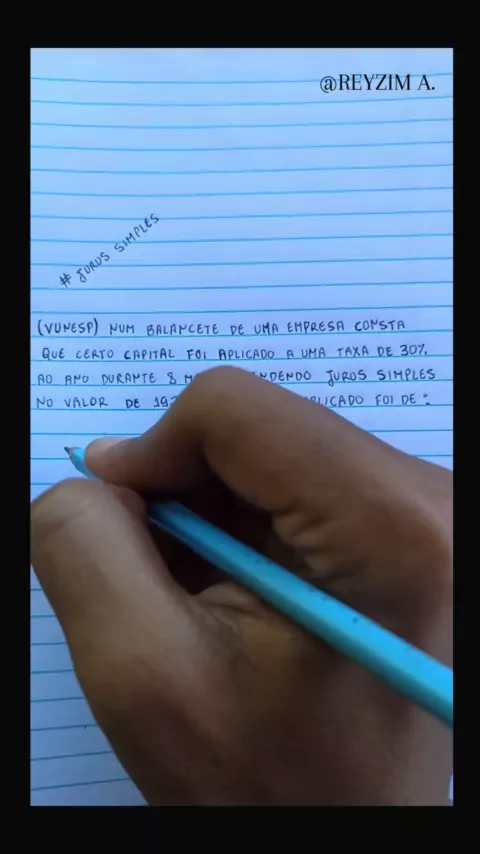 @REYZIM A.
# JUROS SIMPLES
(VUNESP) NUM BALANCETE DE UMA EMPRESA CONSTA
QUE CERTO CAPITAL FOI APLICADO A UMA TAXA DE 30%
AO ANO DURANTE 8 JUROS SIMPLES
NO VALOR DE FOI DE: